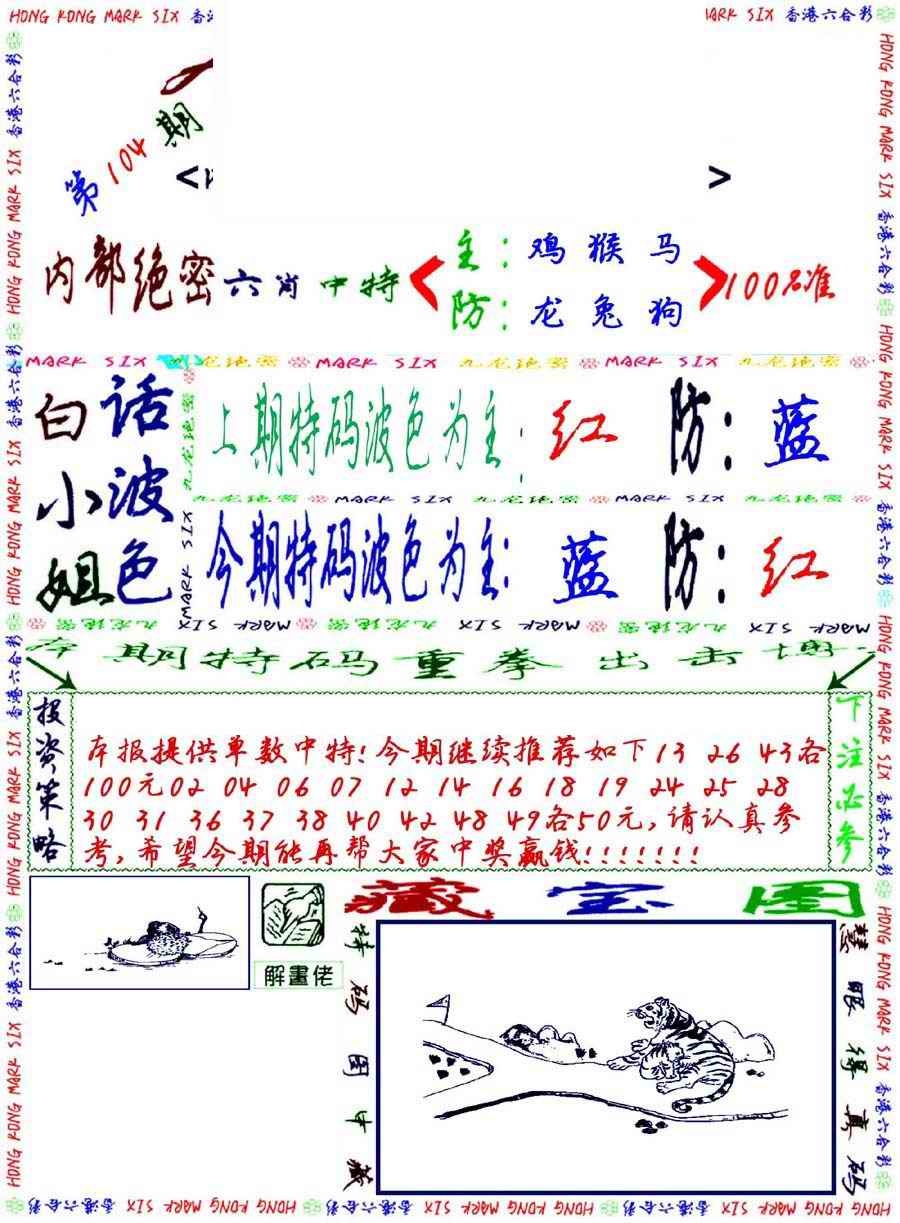 HONG KONG MARK SIX 香
MARK SIX 香港六合彩
第104期
< >
内部绝密六肖中特
主:鸡猴马
防:龙兔狗
100%准
MARK SIX 九龙绝密 MARK SIX 九龙绝密 MARK SIX 九龙绝密
白话
小波
姐色
上期特码波色为主:红 防:蓝
九龙绝密 MARK SIX 九龙绝密 MARK SIX 九龙绝密
今期特码波色为主:蓝 防:红
九龙绝密 MARK SIX 九龙绝密 XIS MARK 九龙绝密 XIS MARK
本期特码重拳出击
投资策略
本报提供单数中特!今期继续推荐如下13 26 43各
100元02 04 06 07 12 14 16 18 19 24 25 28
30 31 36 37 38 40 42 48 49各50元,请认真参
考,希望今期能再帮大家中奖赢钱!!!!!!!
下注必参
解畫佬
藏宝图
特码图中藏
慧眼得真码
HONG KONG MARK SIX 香港六合彩